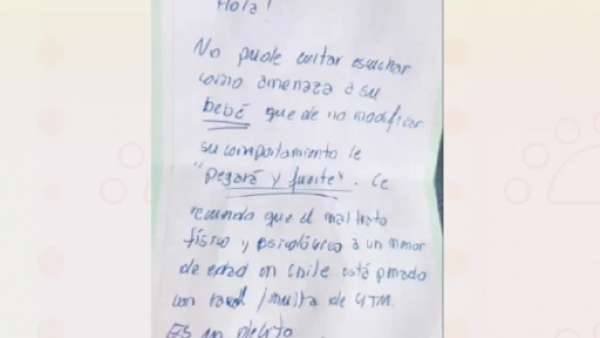 Hola!
No pude evitar escuchar
como amenaza a su
bebé que de no modificar
su comportamiento le
"pegará y fuerte". Le
recuerdo que el maltrato
físico y psicológico a un menor
de edad en Chile está penado
con /multa de UTM.
Es un